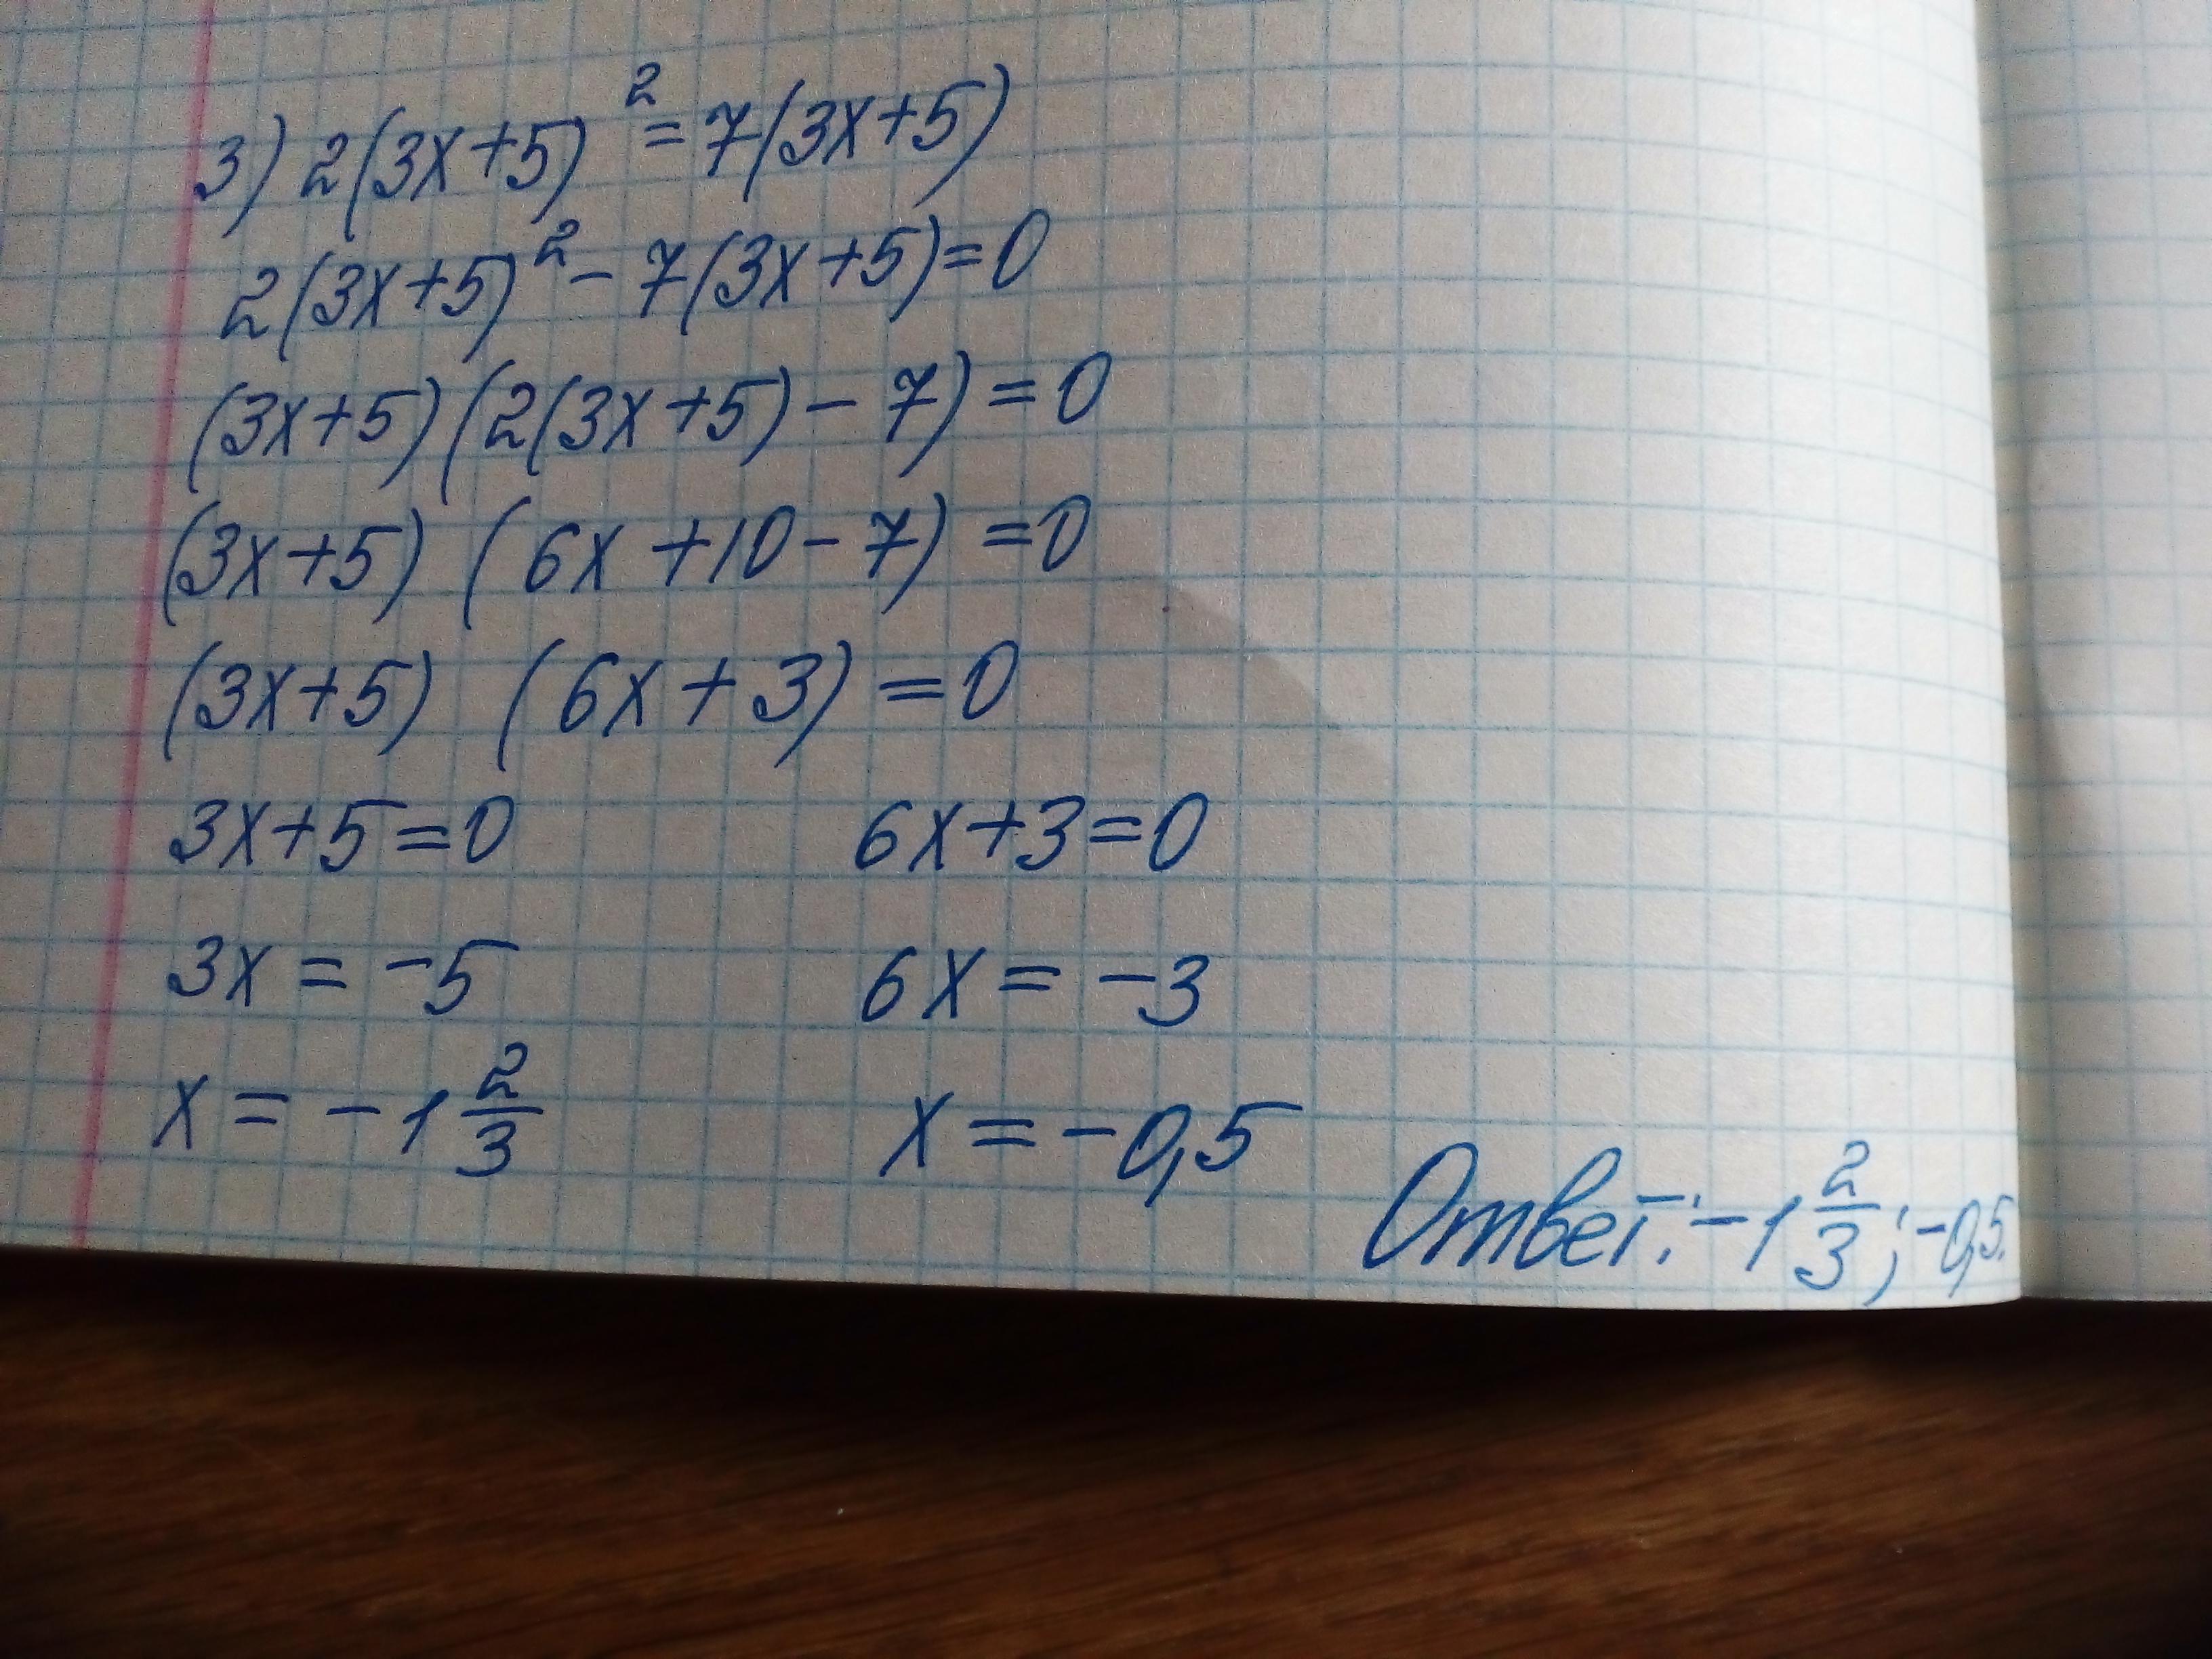 3) 2(3x+5)² = 7(3x+5)
2(3x+5)² - 7(3x+5)=0
(3x+5)(2(3x+5) - 7) = 0
(3x+5) (6x +10 - 7) =0
(3x+5) (6x+3) =0
3x+5=0 6x+3=0
3x = -5 6x = -3
x = -1 2/3 x = -0,5
Ответ: -1 2/3; -0,5.